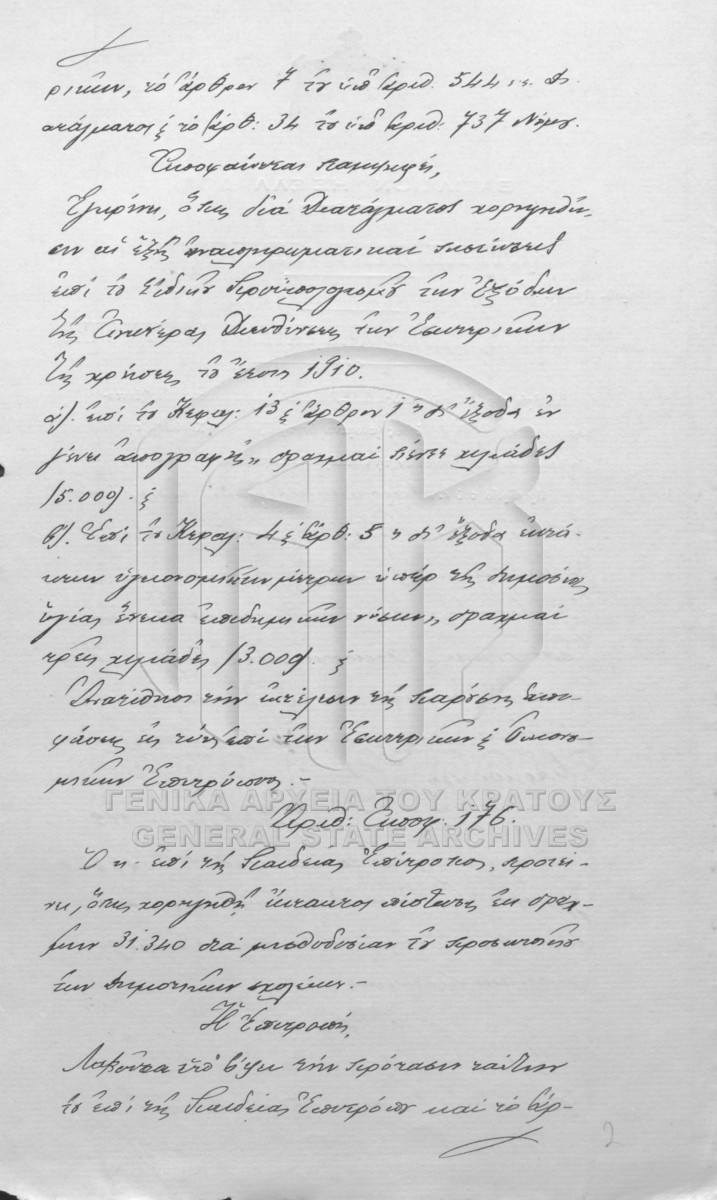 ρικῶν, τὸ ἄρθρον 7 τοῦ ὑπ' ἀριθ. 544 Δι
ατάγματος ς τὸ ἄρθ: 34 τοῦ ὑπ' ἀριθ: 737 Νόμου.
Ἀποφαίνεται παμψηφεί,
Ἐγκρίνει, ὅπως διὰ Διατάγματος χορηγηθῶ-
σιν αἱ ἑξῆς ἀναπληρωματικαὶ πιστώσεις
ἐπὶ τοῦ Εἰδικοῦ Προϋπολογισμοῦ τῶν Ἐξόδων
τῆς Ἀνωτέρας Διευθύνσεως τῶν Ἐσωτερικῶν
τῆς χρήσεως τοῦ ἔτους 1910.
α). ἐπὶ τοῦ Κεφαλ: 13 ς ἄρθρον 1 "δι' ἔξοδα ἐν
γένει ἀπογραφῆς" δραχμαὶ πέντε χιλιάδες
/5.000/. ς
β). Ἐπὶ τοῦ Κεφαλ: 4 ς ἄρθ: 5 " δι' ἔξοδα ἐκτά-
κτων ὑγειονομικῶν μέτρων ὑπὲρ τῆς δημοσίας
ὑγείας ἕνεκα ἐπιδημικῶν νόσων" δραχμαὶ
τρεῖς χιλιάδες /3.000/. ς
Ἀνατίθησι τὴν ἐκτέλεσιν τῆς παρούσης ἀπο-
φάσεως εἰς τοὺς ἐπὶ τῶν Ἐσωτερικῶν ς Οἰκονο-
μικῶν Ἐπιτρόπους.-
Ἀριθ: Ἀποφ. 176.
Ὁ κ. ἐπὶ τῆς Παιδείας Ἐπίτροπος, προτεί-
νει, ὅπως χορηγηθῇ ἔκτακτος πίστωσις ἐκ δραχ-
μῶν 31.340 διὰ μισθοδοσίαν τοῦ προσωπικοῦ
τῶν Δημοτικῶν σχολείων.-
Ἡ Ἐπιτροπή,
Λαβοῦσα ὑπ' ὄψει τὴν πρότασιν ταύτην
τοῦ ἐπὶ τῆς Παιδείας Ἐπιτρόπου καὶ τὸ ἄρ-
2
ΓΕΝΙΚΑ ΑΡΧΕΙΑ ΤΟΥ ΚΡΑΤΟΥΣ
GENERAL STATE ARCHIVES